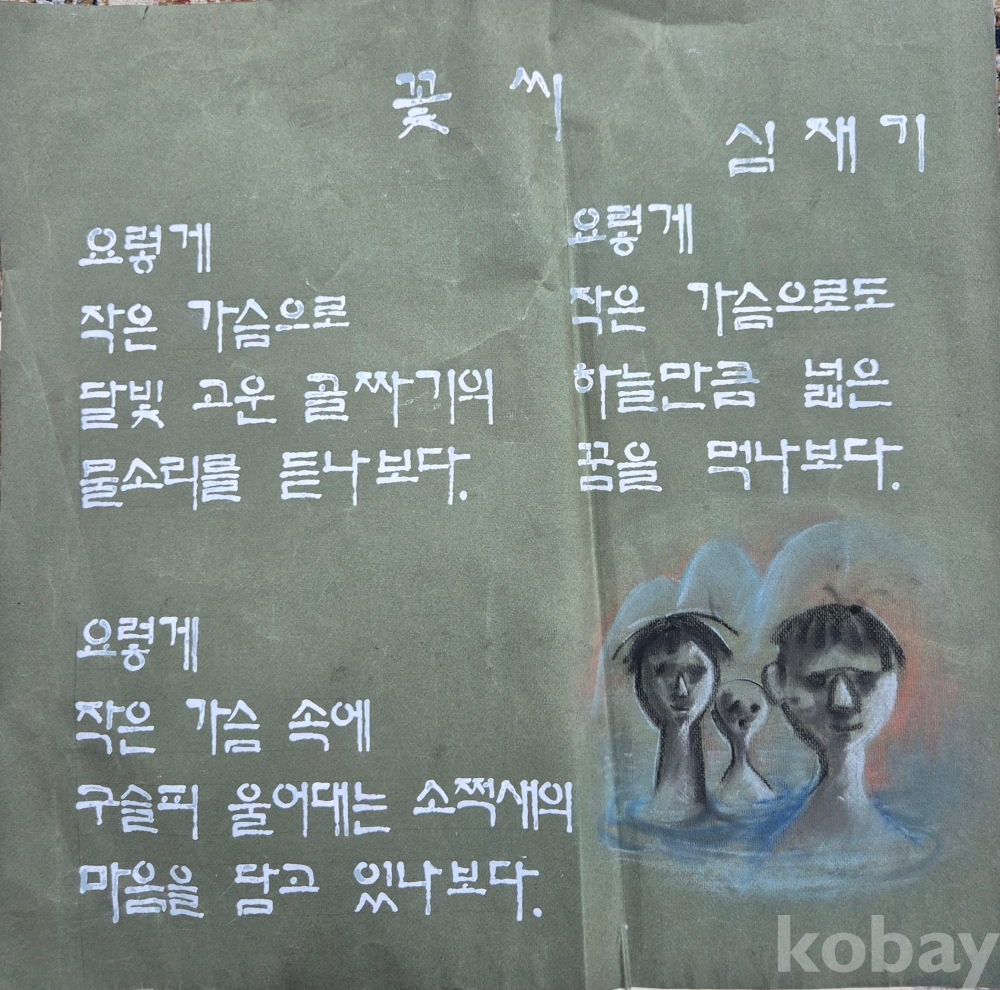 꽃 씨
심재기
요렇게
작은 가슴으로
달빛 고운 골짜기의
물소리를 듣나보다.
요렇게
작은 가슴 속에
구슬피 울어대는 소쩍새의
마음을 담고 있나보다.
요렇게
작은 가슴으로도
하늘만큼 넓은
꿈을 먹나보다.
kobay